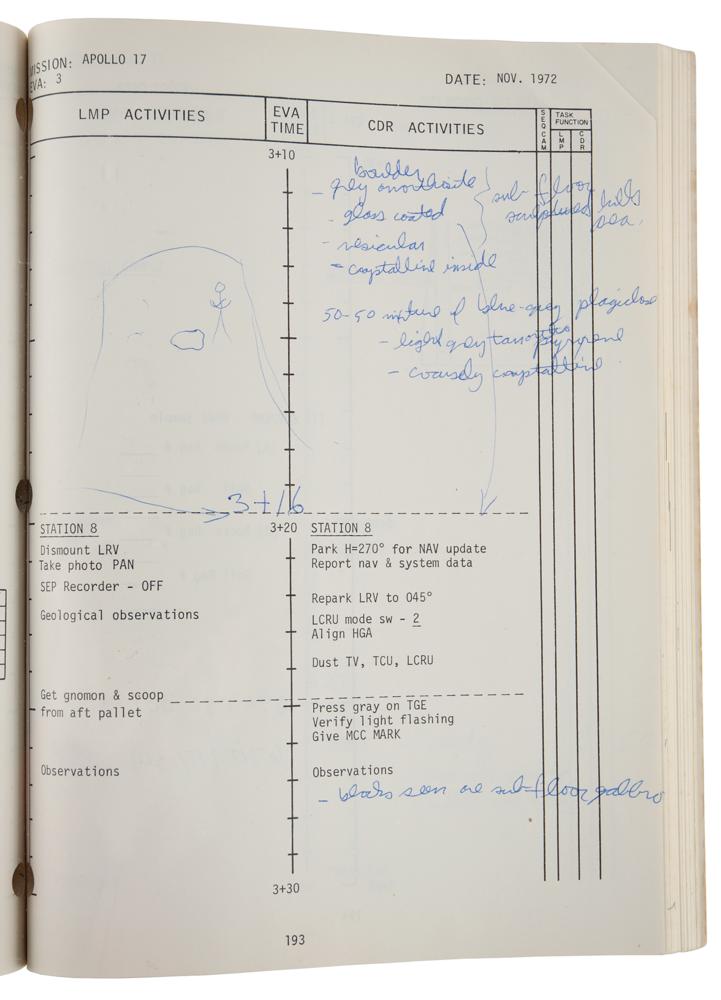 MISSION: APOLLO 17
EVA: 3
DATE: NOV. 1972
LMP ACTIVITIES
EVA TIME
CDR ACTIVITIES
SEQ CAM
TASK FUNCTION
LMP
CDR
3+10
boulder
- grey anorthosite
sub-floor
- glass coated
sculptured hills
- vesicular
- crystalline inside
50-50 mixture of blue-grey plagioclase
- light grey tan
- coarsely crystalline
3+16
STATION 8
3+20
STATION 8
Dismount LRV
Park H=270° for NAV update
Take photo PAN
Report nav & system data
SEP Recorder - OFF
Repark LRV to 045°
Geological observations
LCRU mode sw - 2
Align HGA
Dust TV, TCU, LCRU
Get gnomon & scoop
from aft pallet
Press gray on TGE
Verify light flashing
Give MCC MARK
Observations
Observations
- blocks seen are sub-floor gabbro
3+30
193